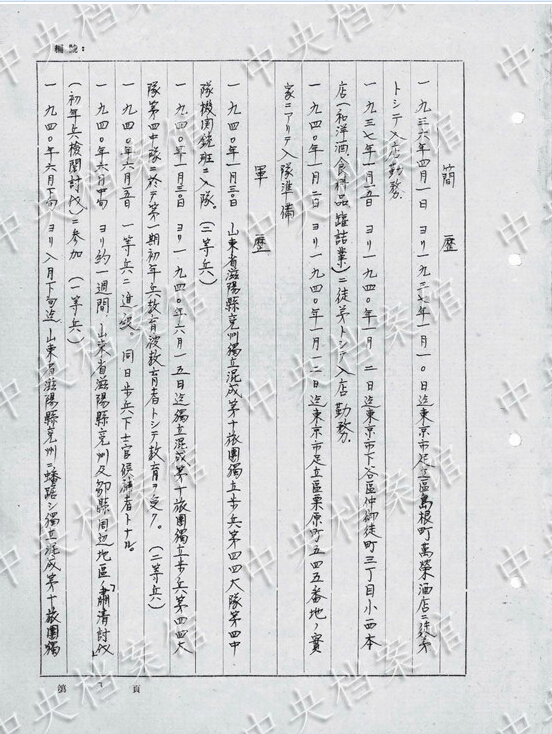 編號：
簡歷
一 一九三六年四月一日 ヨリ 一九三七年一月一〇日迄東京市足立區島根町萬榮酒店ニ徒弟
トシテ入店勤務。
一 一九三七年一月一五日 ヨリ 一九四〇年一月二日迄東京市下谷區仲御徒町三丁目小西本
店（和洋酒食料品罐詰業）ニ徒弟トシテ入店勤務。
一 一九四〇年一月二日 ヨリ 一九四〇年一月一二日迄東京市足立區栗原町五四五番地ノ實
家ニアリテ入隊準備
軍歷
一 一九四〇年一月三〇日 山東省滋陽縣兗州獨立混成第十旅團獨立步兵第四四大隊第四中
隊機関銃班ニ入隊。（二等兵）
一 一九四〇年一月三〇日 ヨリ 一九四〇年六月一五日迄獨立混成第十旅團獨立步兵第四四大
隊第四中隊ニ於テ第一期初年兵教育被教育者トシテ教育ヲ受ク。（二等兵）
一 一九四〇年六月一五日 一等兵ニ進級。同日步兵下士官候補者トナル。
一 一九四〇年六月中旬 ヨリ約一週間、山東省滋陽縣兗州及鄒縣周辺地區ノ「肅清討伐」
（初年兵檢閲討伐）ニ参加（一等兵）
一 一九四〇年六月下旬 ヨリ八月下旬迄山東省滋陽縣兗州ニ蟠踞シ獨立混成第十旅團獨
第 頁
中央档案馆